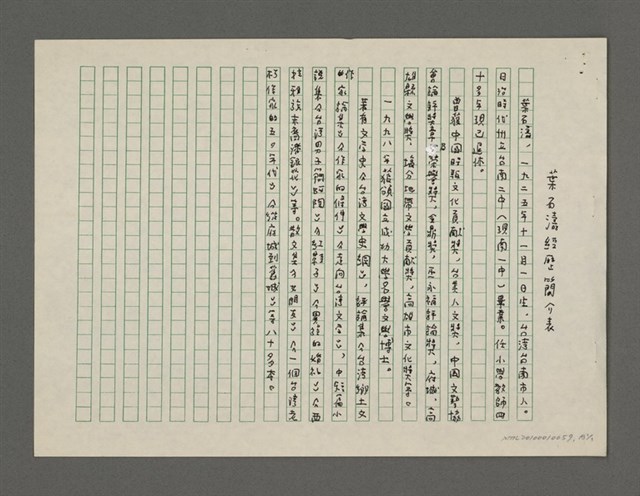 葉石濤經歷簡介表
葉石濤，一九二五年十一月一日生，台灣台南市人。
日治時代州立台南二中（現南一中）畢業。任小學教師四
十多年現已退休。
曾獲中國時報文化貢獻獎，台美人文獎，中國文藝協
會論評獎章榮譽獎，金鼎獎，巫永福評論獎，府城、高
雄縣文學獎，鹽分地帶文學貢獻獎，高雄市文化獎等。
一九九八年獲頒國立成功大學名譽文學博士。
著有文學史《台灣文學史綱》，評論集《台灣鄉土文
作家論集》《作家的條件》《走向台灣文學》，中短篇小
說集《台灣男子簡阿淘》《紅鞋子》《異族的婚禮》《西
拉雅族末裔潘銀花》等。散文集《女朋友》《一個台灣老
朽作家的五〇年代》《從府城到舊城》等八十多本。